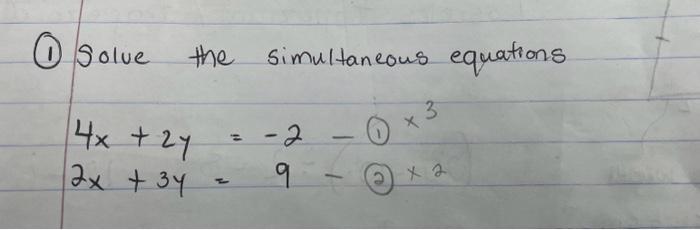 ① Solve the simultaneous equations
4x + 2y = -2 - ① × 3
2x + 3y = 9 - ② × 2